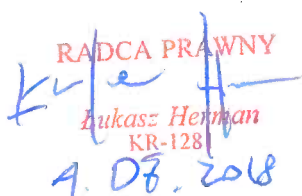 RADCA PRAWNY
Łukasz Herman
KR-128
4.08.2018